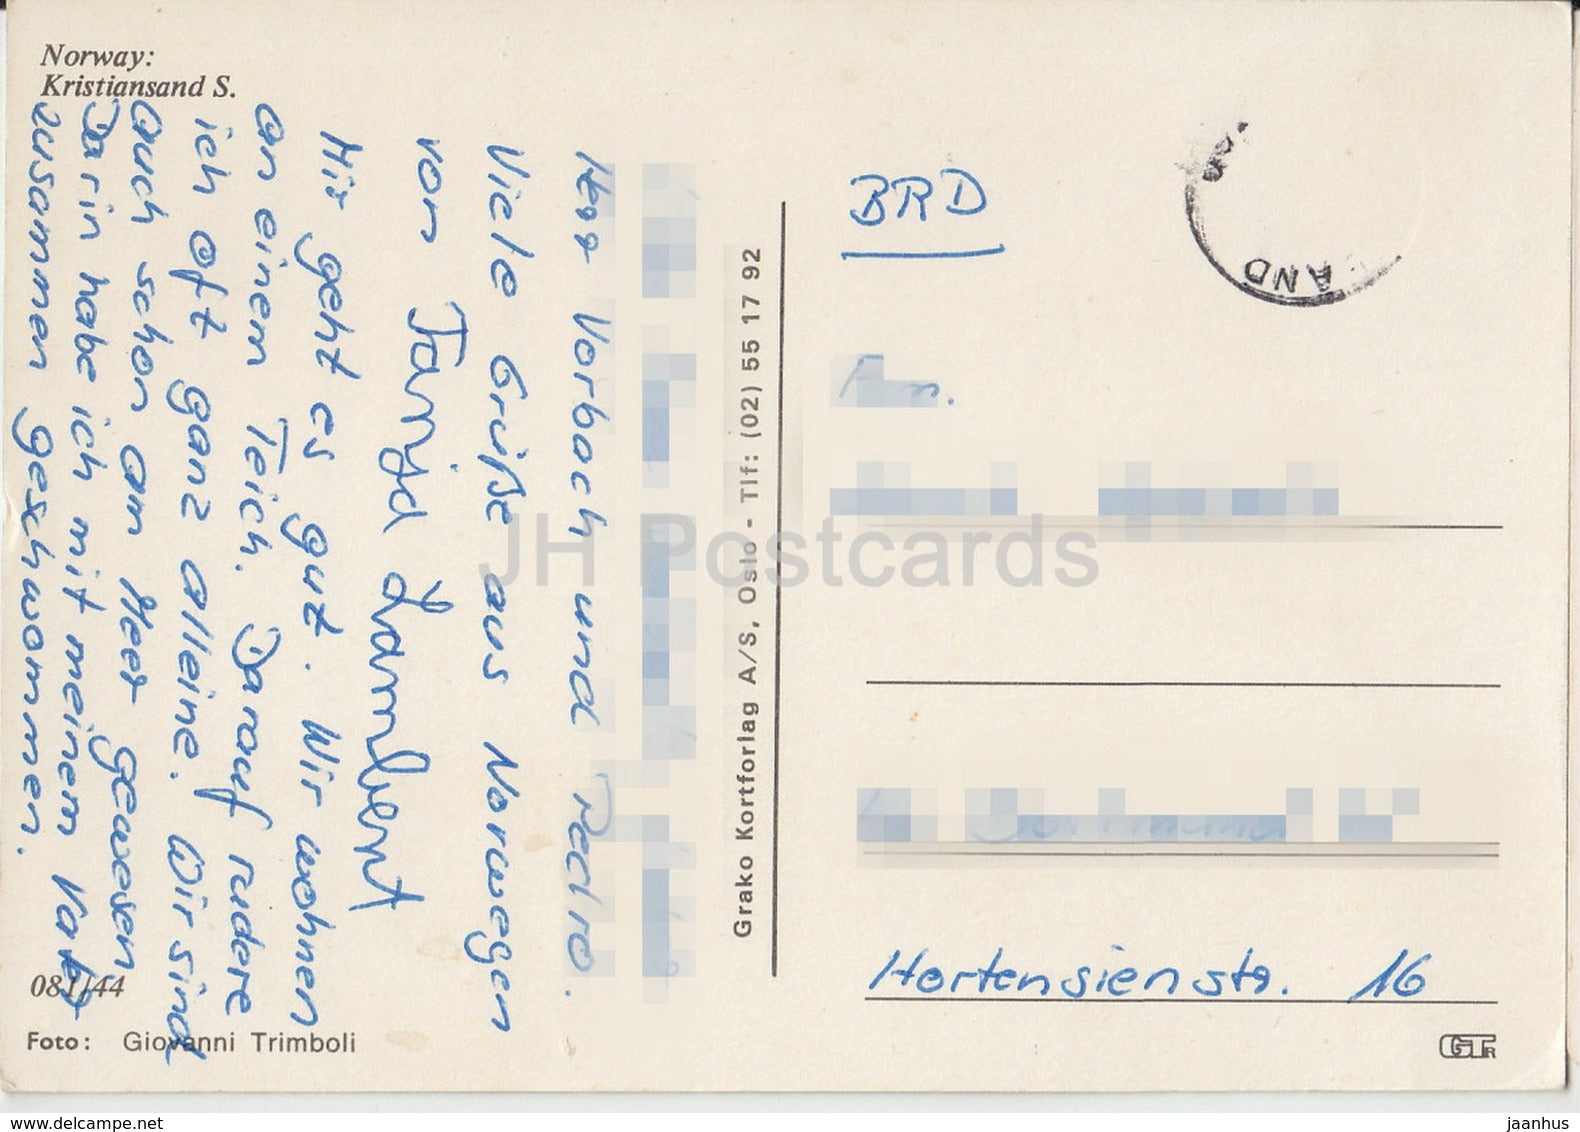 Norway:
Kristiansand S.
Herr Vorbach und Pedro.
Viele Grüße aus Norwegen
von Tanja Lambert
Mir geht es gut. Wir wohnen
an einem Teich. Darauf rudere
ich oft ganz alleine. Wir sind
auch schon am Meer gewesen
Darin habe ich mit meinem Vater
zusammen geschwommen.
081/44
Foto: Giovanni Trimboli
Grako Kortforlag A/S, Oslo - Tlf: (02) 55 17 92
BRD
AND
Hortensienstr. 16
GTR
JH Postcards
www.delcampe.net
jaanhus